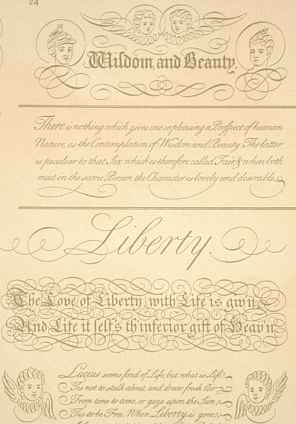 24
Wisdom and Beauty.
There is nothing which gives one so pleasing a Prospect of human
Nature, as the Contemplation of Wisdom and Beauty. The latter
is peculiar to that Sex which is therefore called Fair; when both
meet in the same Person, the Character is lovely and desirable.
Liberty.
The Love of Liberty with Life is giv'n,
And Life it self's th'inferior gift of Heav'n
Lucius seems fond of Life, but what is Life?
'Tis not to stalk about, and draw fresh Air
From time to time, or gaze upon the Sun;
'Tis to be Free. When Liberty is gone,